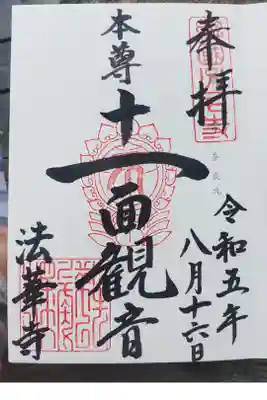 奉拝
令和五年
八月十六日
本尊
十一面観音
法華寺